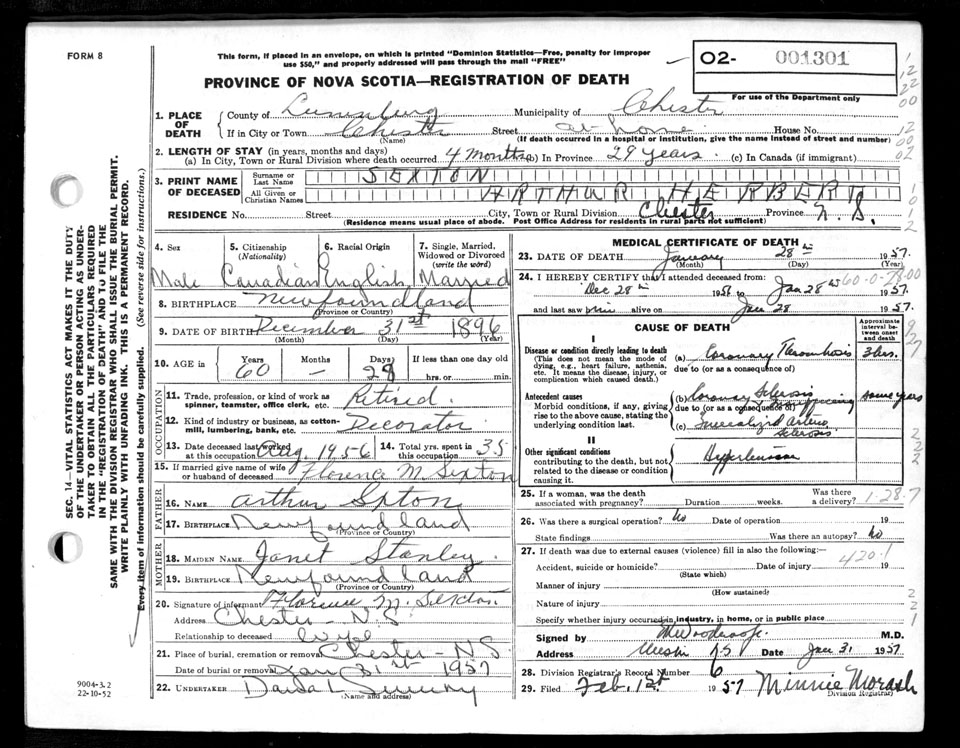 FORM 8
This form, if placed in an envelope, on which is printed "Dominion Statistics—Free, penalty for improper
use $50," and properly addressed will pass through the mail "FREE"
PROVINCE OF NOVA SCOTIA—REGISTRATION OF DEATH
O2- 001301
For use of the Department only
1. PLACE OF DEATH
County of Lunenburg Municipality of Chester
If in City or Town Chester Street at home House No.
(Name) (If death occurred in a hospital or institution, give the name instead of street and number)
2. LENGTH OF STAY (in years, months and days)
(a) In City, Town or Rural Division where death occurred 4 months (b) In Province 29 years. (c) In Canada (if immigrant)
3. PRINT NAME OF DECEASED
Surname or Last Name SEXTON
All Given or Christian Names ARTHUR HERBERT
RESIDENCE No. Street City, Town or Rural Division Chester Province N.S.
(Residence means usual place of abode. Post Office Address for residents in rural parts not sufficient)
4. Sex
Male
5. Citizenship
(Nationality)
Canadian
6. Racial Origin
English
7. Single, Married, Widowed or Divorced
(write the word)
Married
8. BIRTHPLACE Newfoundland
(Province or Country)
9. DATE OF BIRTH December 31st 1896
(Month) (Day) (Year)
10. AGE in Years Months Days If less than one day old
60 — 28 hrs. or min.
OCCUPATION
11. Trade, profession, or kind of work as
spinner, teamster, office clerk, etc. Retired.
12. Kind of industry or business, as cotton-
mill, lumbering, bank, etc. Decorator
13. Date deceased last worked
at this occupation Aug. 1956
14. Total yrs. spent in
this occupation 35
15. If married give name of wife
or husband of deceased Florence M. Sexton
FATHER
16. NAME Arthur Sxton
17. BIRTHPLACE Newfoundland
(Province or Country)
MOTHER
18. MAIDEN NAME Janet Stanley.
19. BIRTHPLACE Newfoundland
(Province or Country)
20. Signature of informant Florence M. Sexton
Address Chester - N.S
Relationship to deceased wife
21. Place of burial, cremation or removal Chester - N S
Date of burial or removal Jan 31st 1957
22. UNDERTAKER
(Name and address)
MEDICAL CERTIFICATE OF DEATH
23. DATE OF DEATH January 28th 1957
(Month) (Day) (Year)
24. I HEREBY CERTIFY that I attended deceased from:
Dec 28th 1956 to Jan 28th 1957.
60-0-28-00
and last saw him alive on Jan 28 1957.
CAUSE OF DEATH
Approximate interval between onset and death
I
Disease or condition directly leading to death
(This does not mean the mode of dying, e.g., heart failure, asthenia, etc. It means the disease, injury, or complication which caused death.)
(a) Coronary Thrombosis 3 hrs.
due to (or as a consequence of)
Antecedent causes
Morbid conditions, if any, giving rise to the above cause, stating the underlying condition last.
(b) Coronary Sclerosis some years
due to (or as a consequence of)
(c) Generalized arterio sclerosis
II
Other significant conditions
contributing to the death, but not related to the disease or condition causing it.
Hypertension
25. If a woman, was the death
associated with pregnancy? Duration weeks. Was there a delivery?
1-28-7
26. Was there a surgical operation? No Date of operation 19
State findings Was there an autopsy? No
27. If death was due to external causes (violence) fill in also the following:—
Accident, suicide or homicide? Date of injury 19
420.1
(State which)
Manner of injury
(How sustained)
Nature of injury
Specify whether injury occurred in industry, in home, or in public place
Signed by M.D.
Address N S Date Jan 31 1957
28. Division Registrar's Record Number 6
29. Filed Feb. 1st 1957 Minnie Morash
Division Registrar
SEC. 14—VITAL STATISTICS ACT MAKES IT THE DUTY
OF THE UNDERTAKER OR PERSON ACTING AS UNDER-
TAKER TO OBTAIN ALL THE PARTICULARS REQUIRED
IN THE "REGISTRATION OF DEATH" AND TO FILE THE
SAME WITH THE DIVISION REGISTRAR WHO SHALL ISSUE THE BURIAL PERMIT.
WRITE PLAINLY WITH UNFADING INK. THIS IS A PERMANENT RECORD.
Every item of information should be carefully supplied. (See reverse side for instructions.)
9004-3.2
22-10-52